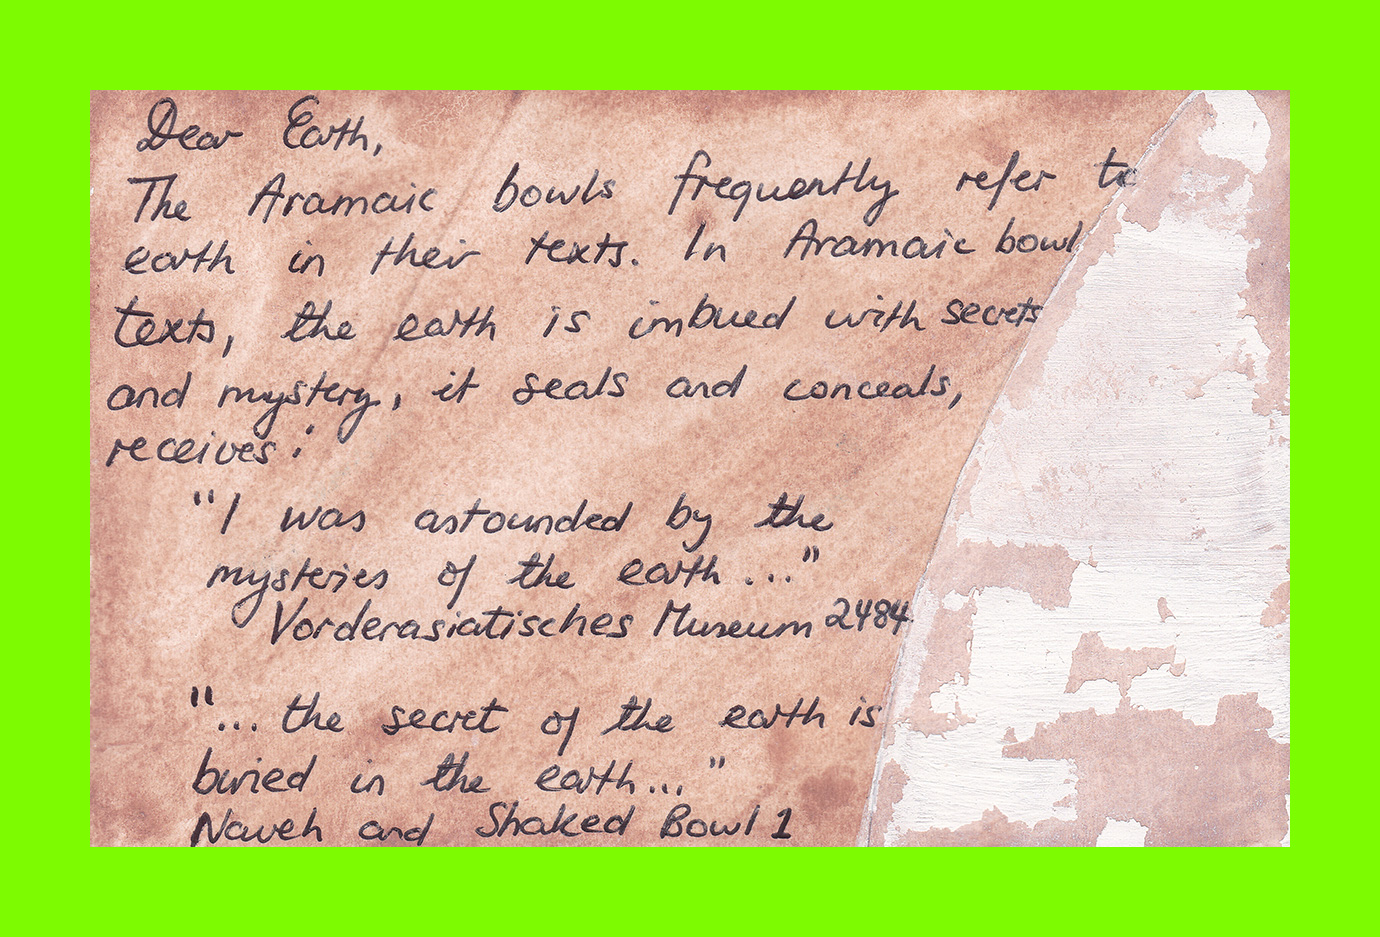 Dear Earth,
The Aramaic bowls frequently refer to
earth in their texts. In Aramaic bowl
texts, the earth is imbued with secrets
and mystery, it seals and conceals,
receives:
"I was astounded by the
mysteries of the earth..."
Vorderasiatisches Museum 2484.
"... the secret of the earth is
buried in the earth..."
Naveh and Shaked Bowl 1